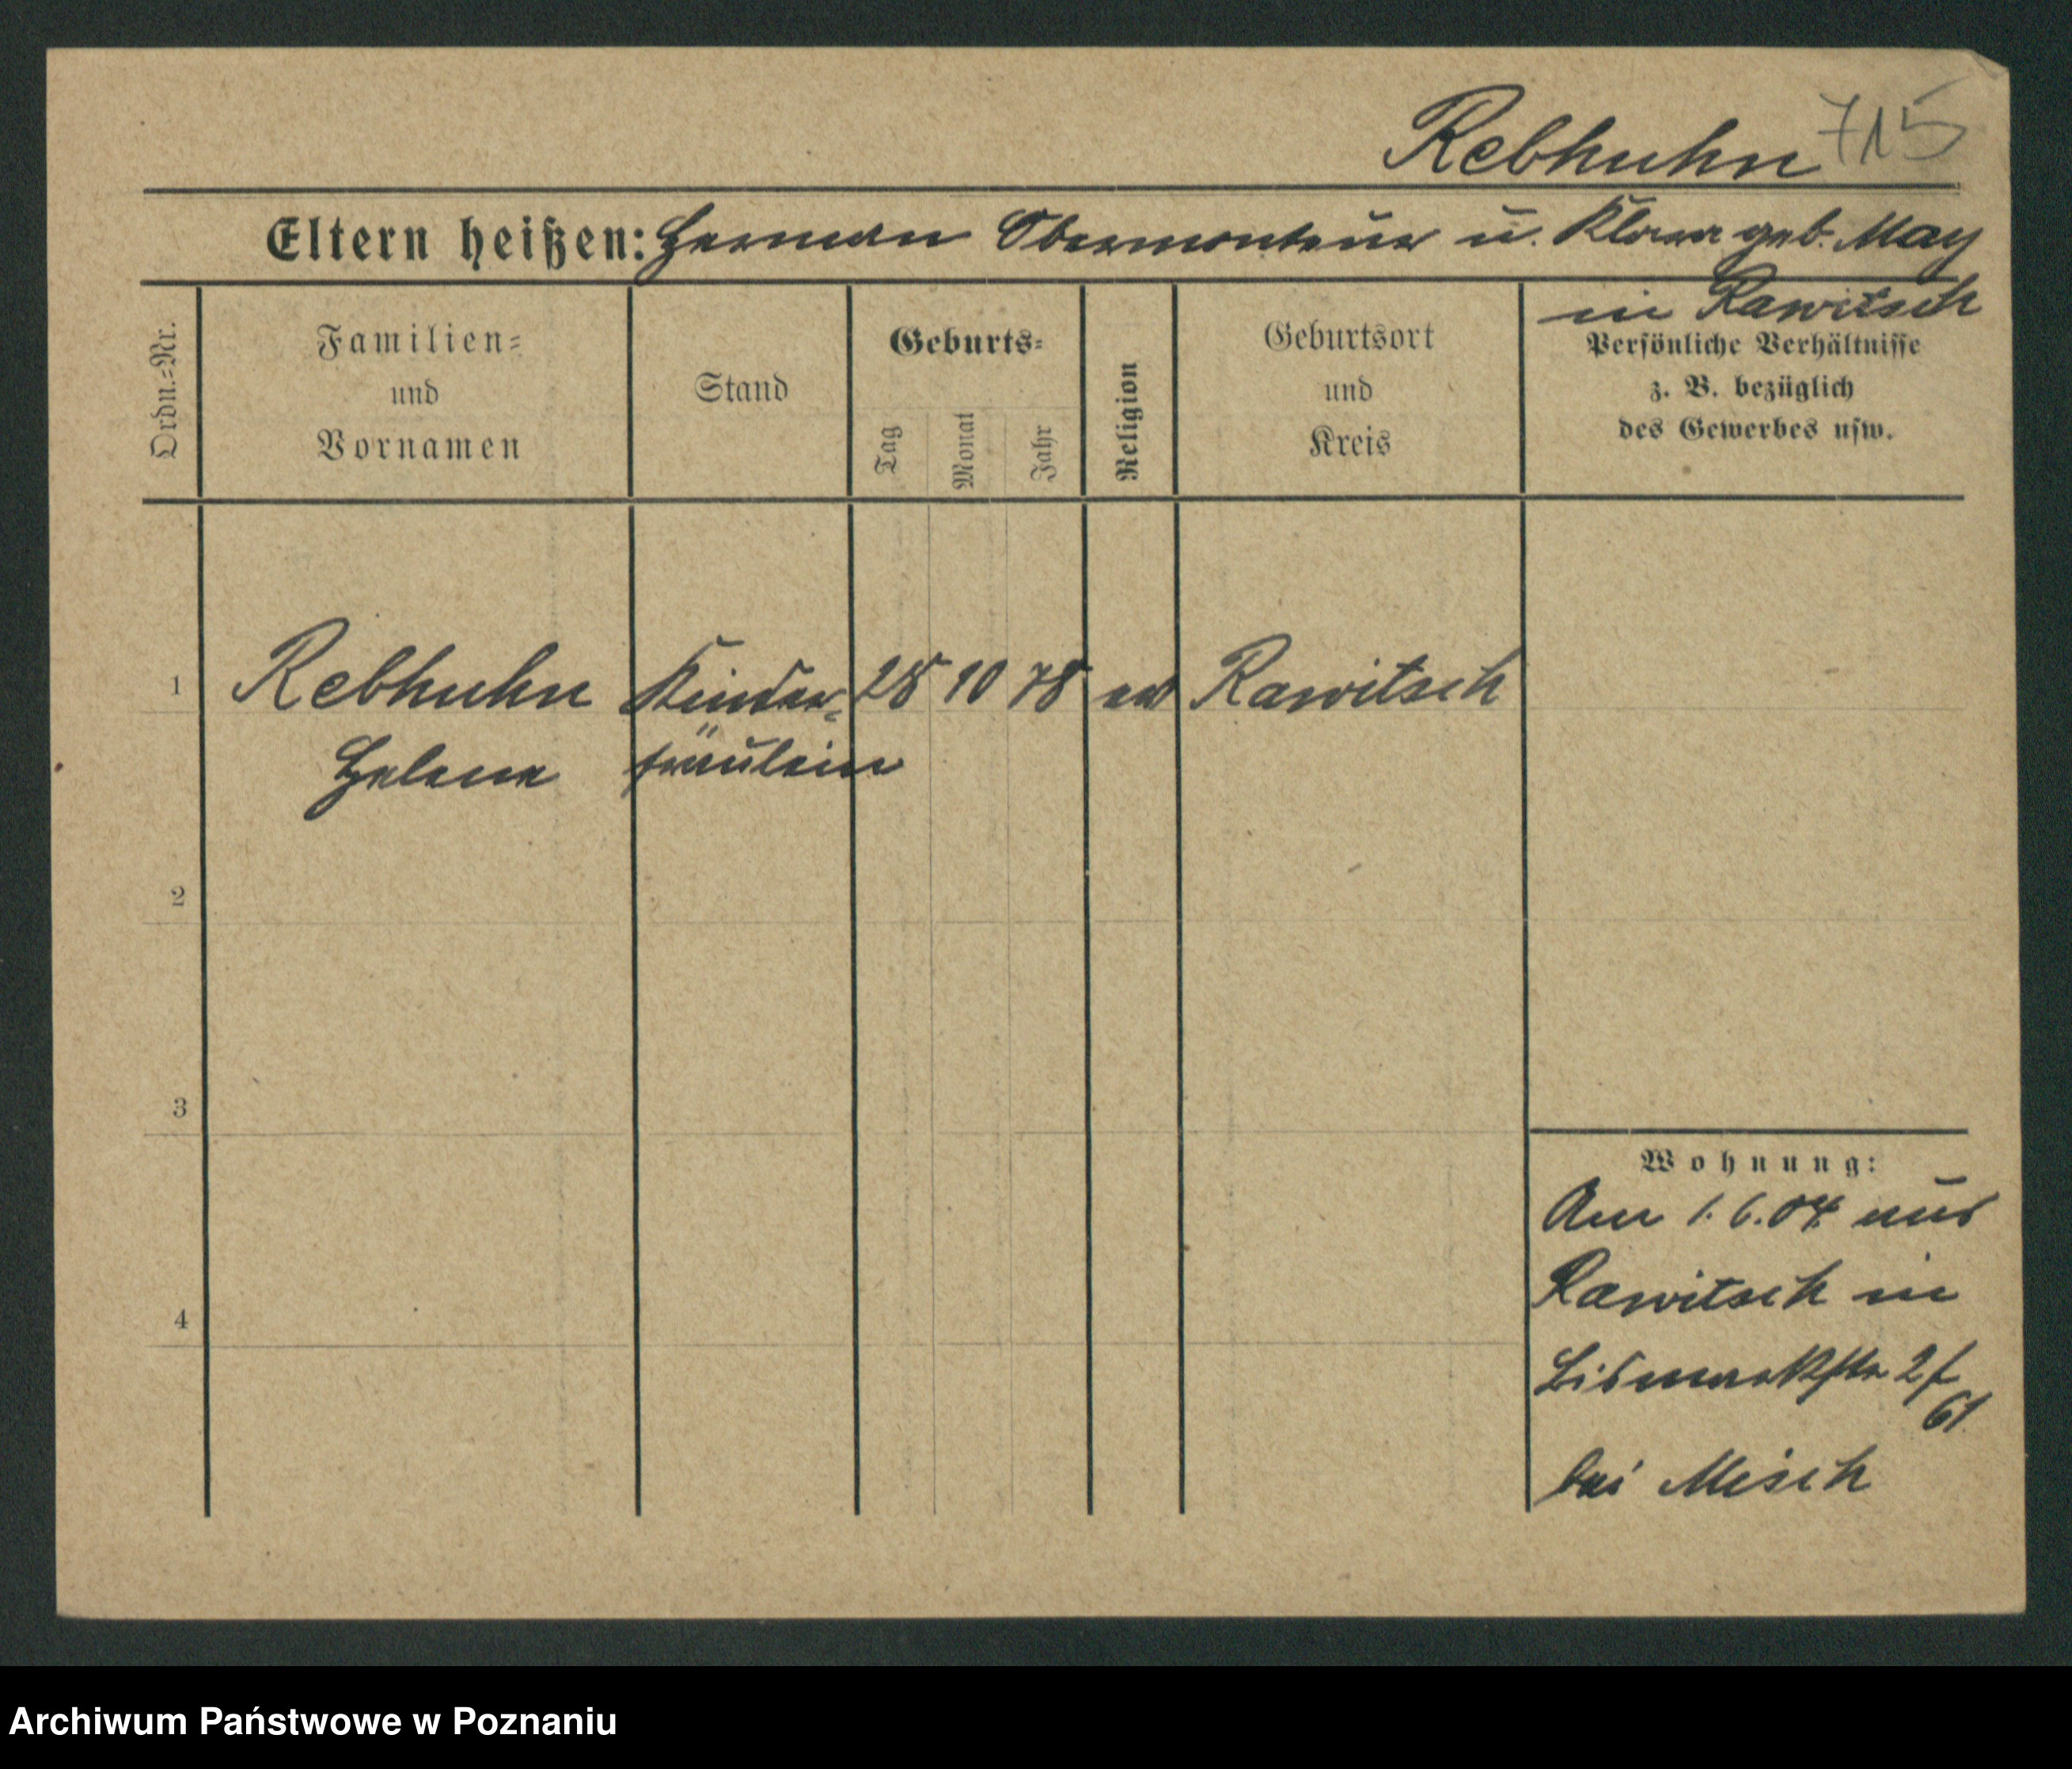 Rebhuhn 715
Eltern heißen: Herman Obermonteur u. Klara geb. May
in Rawitsch
Ordn.-Nr.
Familien-
und
Vornamen
Stand
Geburts-
Tag
Monat
Jahr
Religion
Geburtsort
und
Kreis
Persönliche Verhältnisse
z. B. bezüglich
des Gewerbes usw.
1 Rebhuhn Kinder- 28 10 78 ev Rawitsch
Helene fräulein
2
3
4
Wohnung:
Am 1.6.04 aus
Rawitsch in
Bismarckstr 2
bei Misch
Archiwum Państwowe w Poznaniu